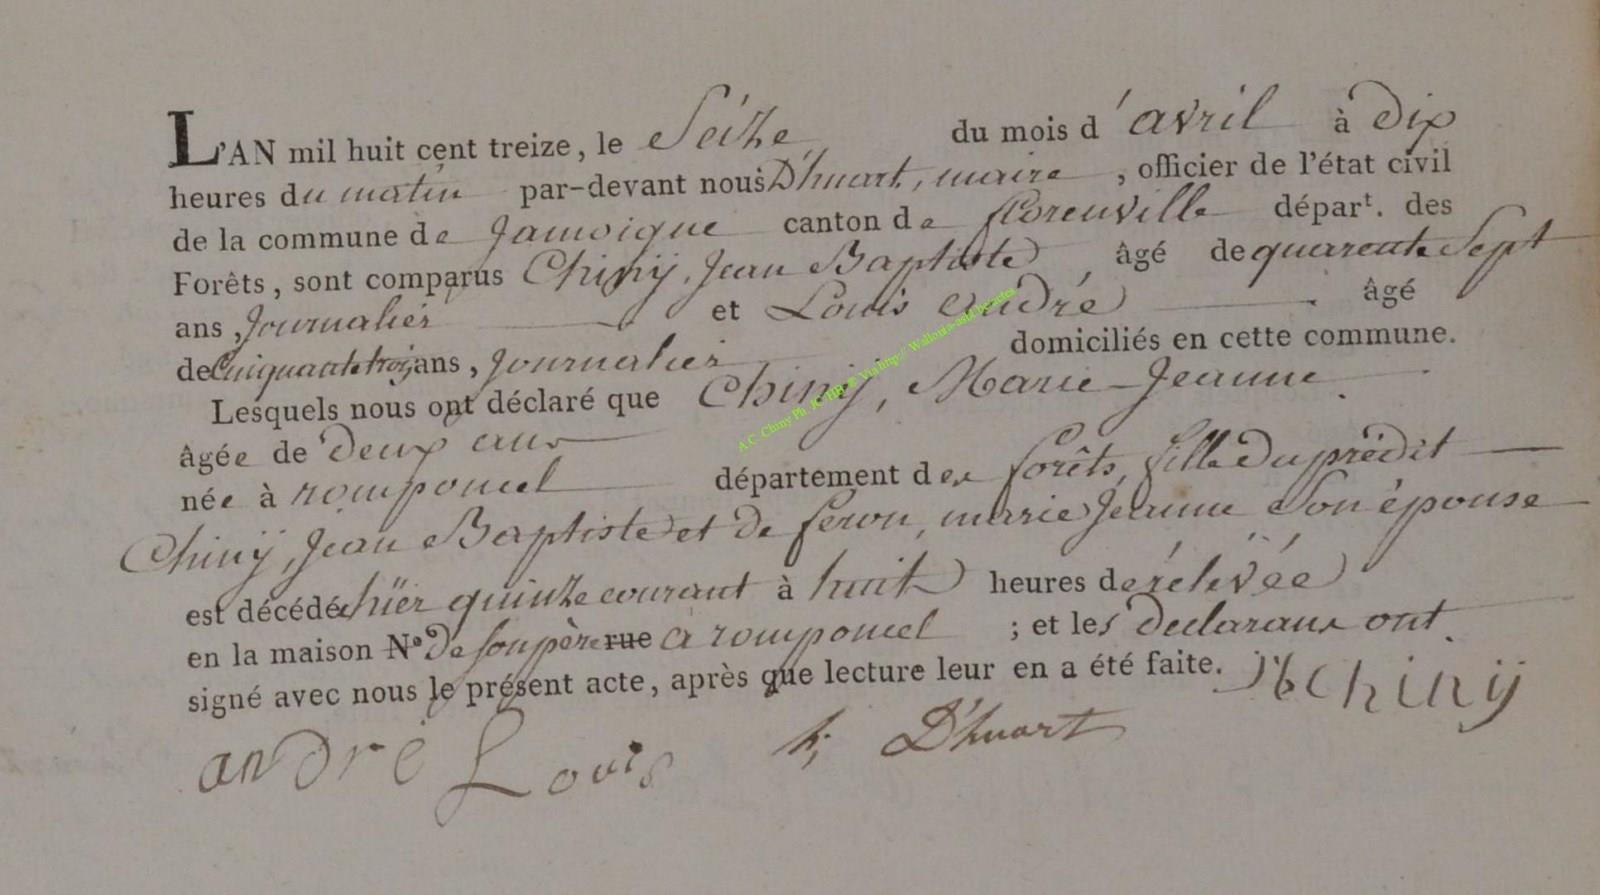 L'AN mil huit cent treize, le Seize du mois d'avril à dix
heures du matin par-devant nous D'huart, maire, officier de l'état civil
de la commune de Jamoigne canton de florenville départ. des
Forêts, sont comparus Chinÿ, Jean Baptiste, âgé de quarente Sept
ans, Journalier et Louis André âgé
de Cinquante trois ans, journalier domiciliés en cette commune.
Lesquels nous ont déclaré que Chinÿ, Marie-Jeanne.
âgée de deux ans
née à romponcel département des forêts, fille du prédit
Chinÿ, Jean Baptiste et de feron, marie Jeanne Son épouse
est décédée hïer quinze courant à huit heures de relevée
en la maison N.º de son père rue à romponcel ; et les declarans ont.
signé avec nous le présent acte, après que lecture leur en a été faite. JB Chinÿ
andré Louis h; D'huart
A.C. Chiny Ph. JC HH @ Via http:// Wallonia-asbl be/actes